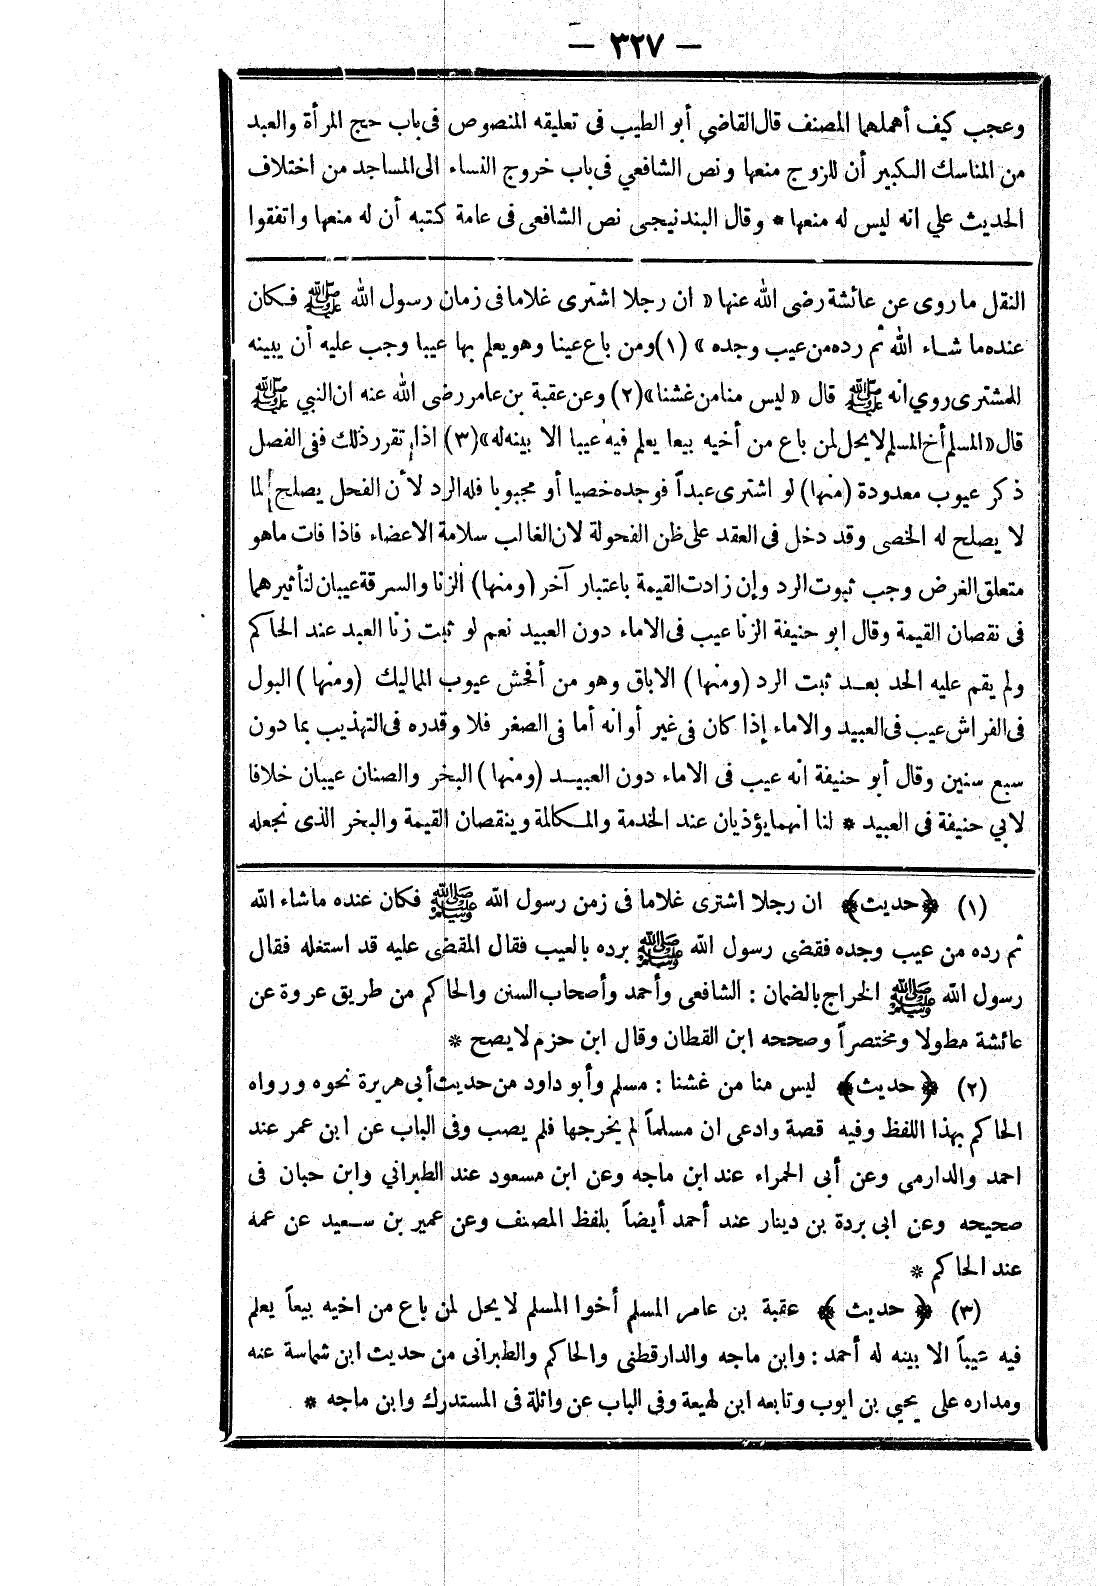 — ٣٢٧ —
وعجب كيف أهملهما المصنف قال القاضي أبو الطيب فى تعليقه المنصوص فى باب حج المرأة والعبد
من المناسك الكبير أن للزوج منعها ونص الشافعي فى باب خروج النساء الى المساجد من اختلاف
الحديث علي انه ليس له منعها * وقال البندنيجى نص الشافعى فى عامة كتبه أن له منعها واتفقوا
النقل ما روى عن عائشة رضى الله عنها « ان رجلا اشترى غلاما فى زمان رسول الله ﷺ فكان
عنده ما شاء الله ثم رده من عيب وجده » (١) ومن باع عينا وهو يعلم بها عيبا وجب عليه أن يبينه
للمشترى روي انه ﷺ قال « ليس منا من غشنا» (٢) وعن عقبة بن عامر رضى الله عنه ان النبي ﷺ
قال «المسلم أخ المسلم لا يحل لمن باع من أخيه بيعا يعلم فيه عيبا الا بينه له» (٣) اذا تقرر ذلك ففى الفصل
ذكر عيوب معدودة (منها) لو اشترى عبداً فوجده خصيا أو مجبوبا فله الرد لأن الفحل يصلح لما
لا يصلح له الخصى وقد دخل فى العقد على ظن الفحولة لان الغالب سلامة الاعضاء فاذا فات ما هو
متعلق الغرض وجب ثبوت الرد وإن زادت القيمة باعتبار آخر (ومنها) الزنا والسرقة عيبان لنا تأثيرهما
فى نقصان القيمة وقال ابو حنيفة الزنا عيب فى الاماء دون العبيد نعم لو ثبت زنا العبد عند الحاكم
ولم يقم عليه الحد بعد ثبت الرد (ومنها) الاباق وهو من أفحش عيوب المماليك (ومنها) البول
فى الفراش عيب فى العبيد والاماء إذا كان فى غير أوانه أما فى الصغر فلا وقدره فى التهذيب بما دون
سبع سنين وقال أبو حنيفة انه عيب فى الاماء دون العبيد (ومنها) البخر والصنان عيبان خلافا
لابي حنيفة فى العبيد * لنا انهما يؤذيان عند الخدمة والمكالمة وينقصان القيمة والبخر الذى نجعله
(١) ﴿حديث﴾ ان رجلا اشترى غلاما فى زمن رسول الله ﷺ فكان عنده ما شاء الله
ثم رده من عيب وجده فقضى رسول الله ﷺ برده بالعيب فقال المقضى عليه قد استغله فقال
رسول الله ﷺ الخراج بالضمان : الشافعى وأحمد وأصحاب السنن والحاكم من طريق عروة عن
عائشة مطولا ومختصراً وصححه ابن القطان وقال ابن حزم لا يصح *
(٢) ﴿حديث﴾ ليس منا من غشنا : مسلم وأبو داود من حديث أبى هريرة نحوه ورواه
الحاكم بهذا اللفظ وفيه قصة وادعى ان مسلماً لم يخرجها فلم يصب وفى الباب عن ابن عمر عند
احمد والدارمى وعن أبى الحمراء عند ابن ماجه وعن ابن مسعود عند الطبراني وابن حبان فى
صحيحه وعن ابى بردة بن دينار عند أحمد أيضاً بلفظ المصنف وعن عمير بن سعيد عن عمه
عند الحاكم *
(٣) ﴿ حديث ﴾ عقبة بن عامر المسلم أخوا المسلم لا يحل لمن باع من اخيه بيعاً يعلم
فيه عيباً الا بينه له أحمد : وابن ماجه والدارقطنى والحاكم والطبرانى من حديث ابن شماسة عنه
ومداره على يحيي بن ايوب وتابعه ابن لهيعة وفى الباب عن واثلة فى المستدرك وابن ماجه *